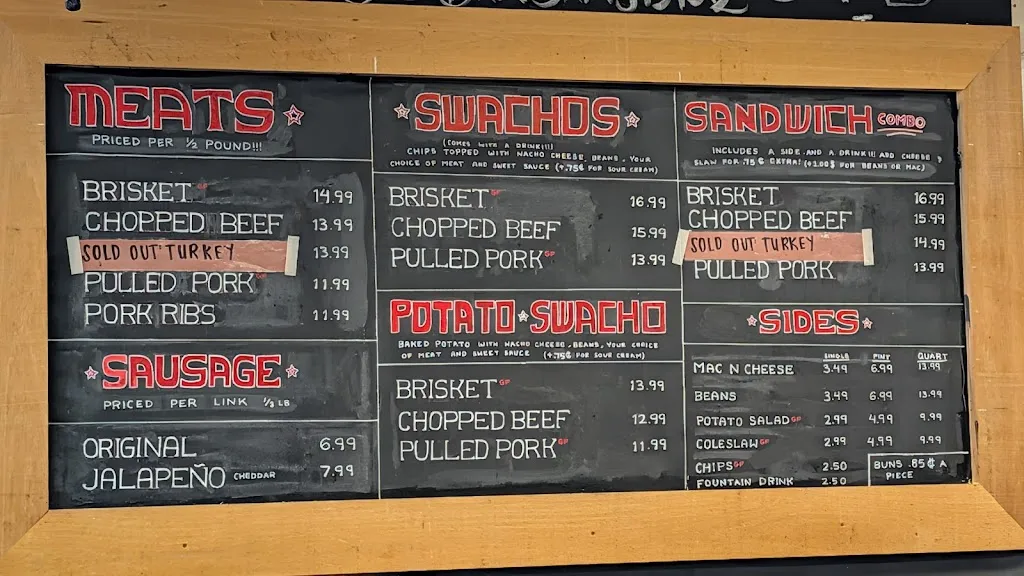 MEATS
PRICED PER ½ POUND!!!
BRISKET GF 14.99
CHOPPED BEEF 13.99
SOLD OUT TURKEY 13.99
PULLED PORK GF 11.99
PORK RIBS 11.99
SAUSAGE
PRICED PER LINK ⅓ LB
ORIGINAL 6.99
JALAPEÑO CHEDDAR 7.99
SWACHOS
(COMES WITH A DRINK!!!)
CHIPS TOPPED WITH NACHO CHEESE, BEANS, YOUR
CHOICE OF MEAT AND SWEET SAUCE (+.75¢ FOR SOUR CREAM)
BRISKET GF 16.99
CHOPPED BEEF 15.99
PULLED PORK GF 13.99
POTATO SWACHO
BAKED POTATO WITH NACHO CHEESE, BEANS, YOUR CHOICE
OF MEAT AND SWEET SAUCE (+.75¢ FOR SOUR CREAM)
BRISKET GF 13.99
CHOPPED BEEF 12.99
PULLED PORK GF 11.99
SANDWICH COMBO
INCLUDES A SIDE AND A DRINK!!! ADD CHEESE &
SLAW FOR .75¢ EXTRA! (+1.00$ FOR BEANS OR MAC)
BRISKET 16.99
CHOPPED BEEF 15.99
SOLD OUT TURKEY 14.99
PULLED PORK 13.99
SIDES
SINGLE PINT QUART
MAC N CHEESE 3.49 6.99 13.99
BEANS 3.49 6.99 13.99
POTATO SALAD GF 2.99 4.99 9.99
COLESLAW GF 2.99 4.99 9.99
CHIPS GF 2.50
FOUNTAIN DRINK 2.50
BUNS .85¢ A
PIECE